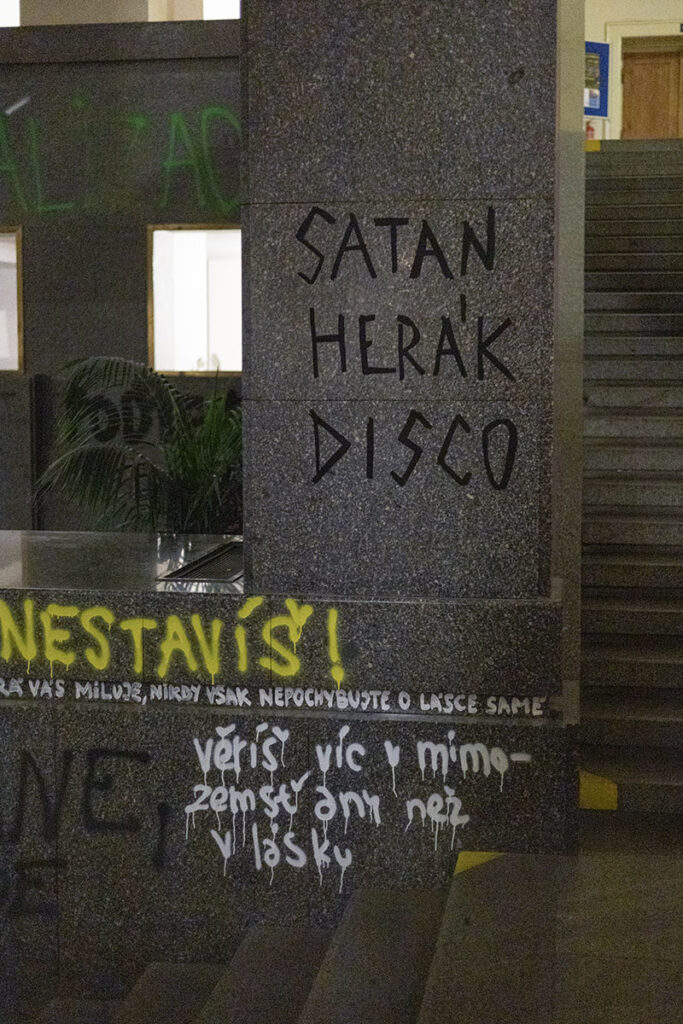 ALIZAC
SATAN
HERÁK
DISCO
NESTAVÍŠ!
RÁ VÁS MILUJE, NIKDY VŠAK NEPOCHYBUJTE O LÁSCE SAMÉ
věříš víc v mimo-
zemšťany než
v lásku
ANE,